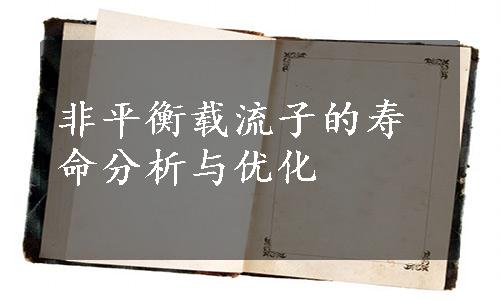 非平衡载流子的寿
命分析与优化